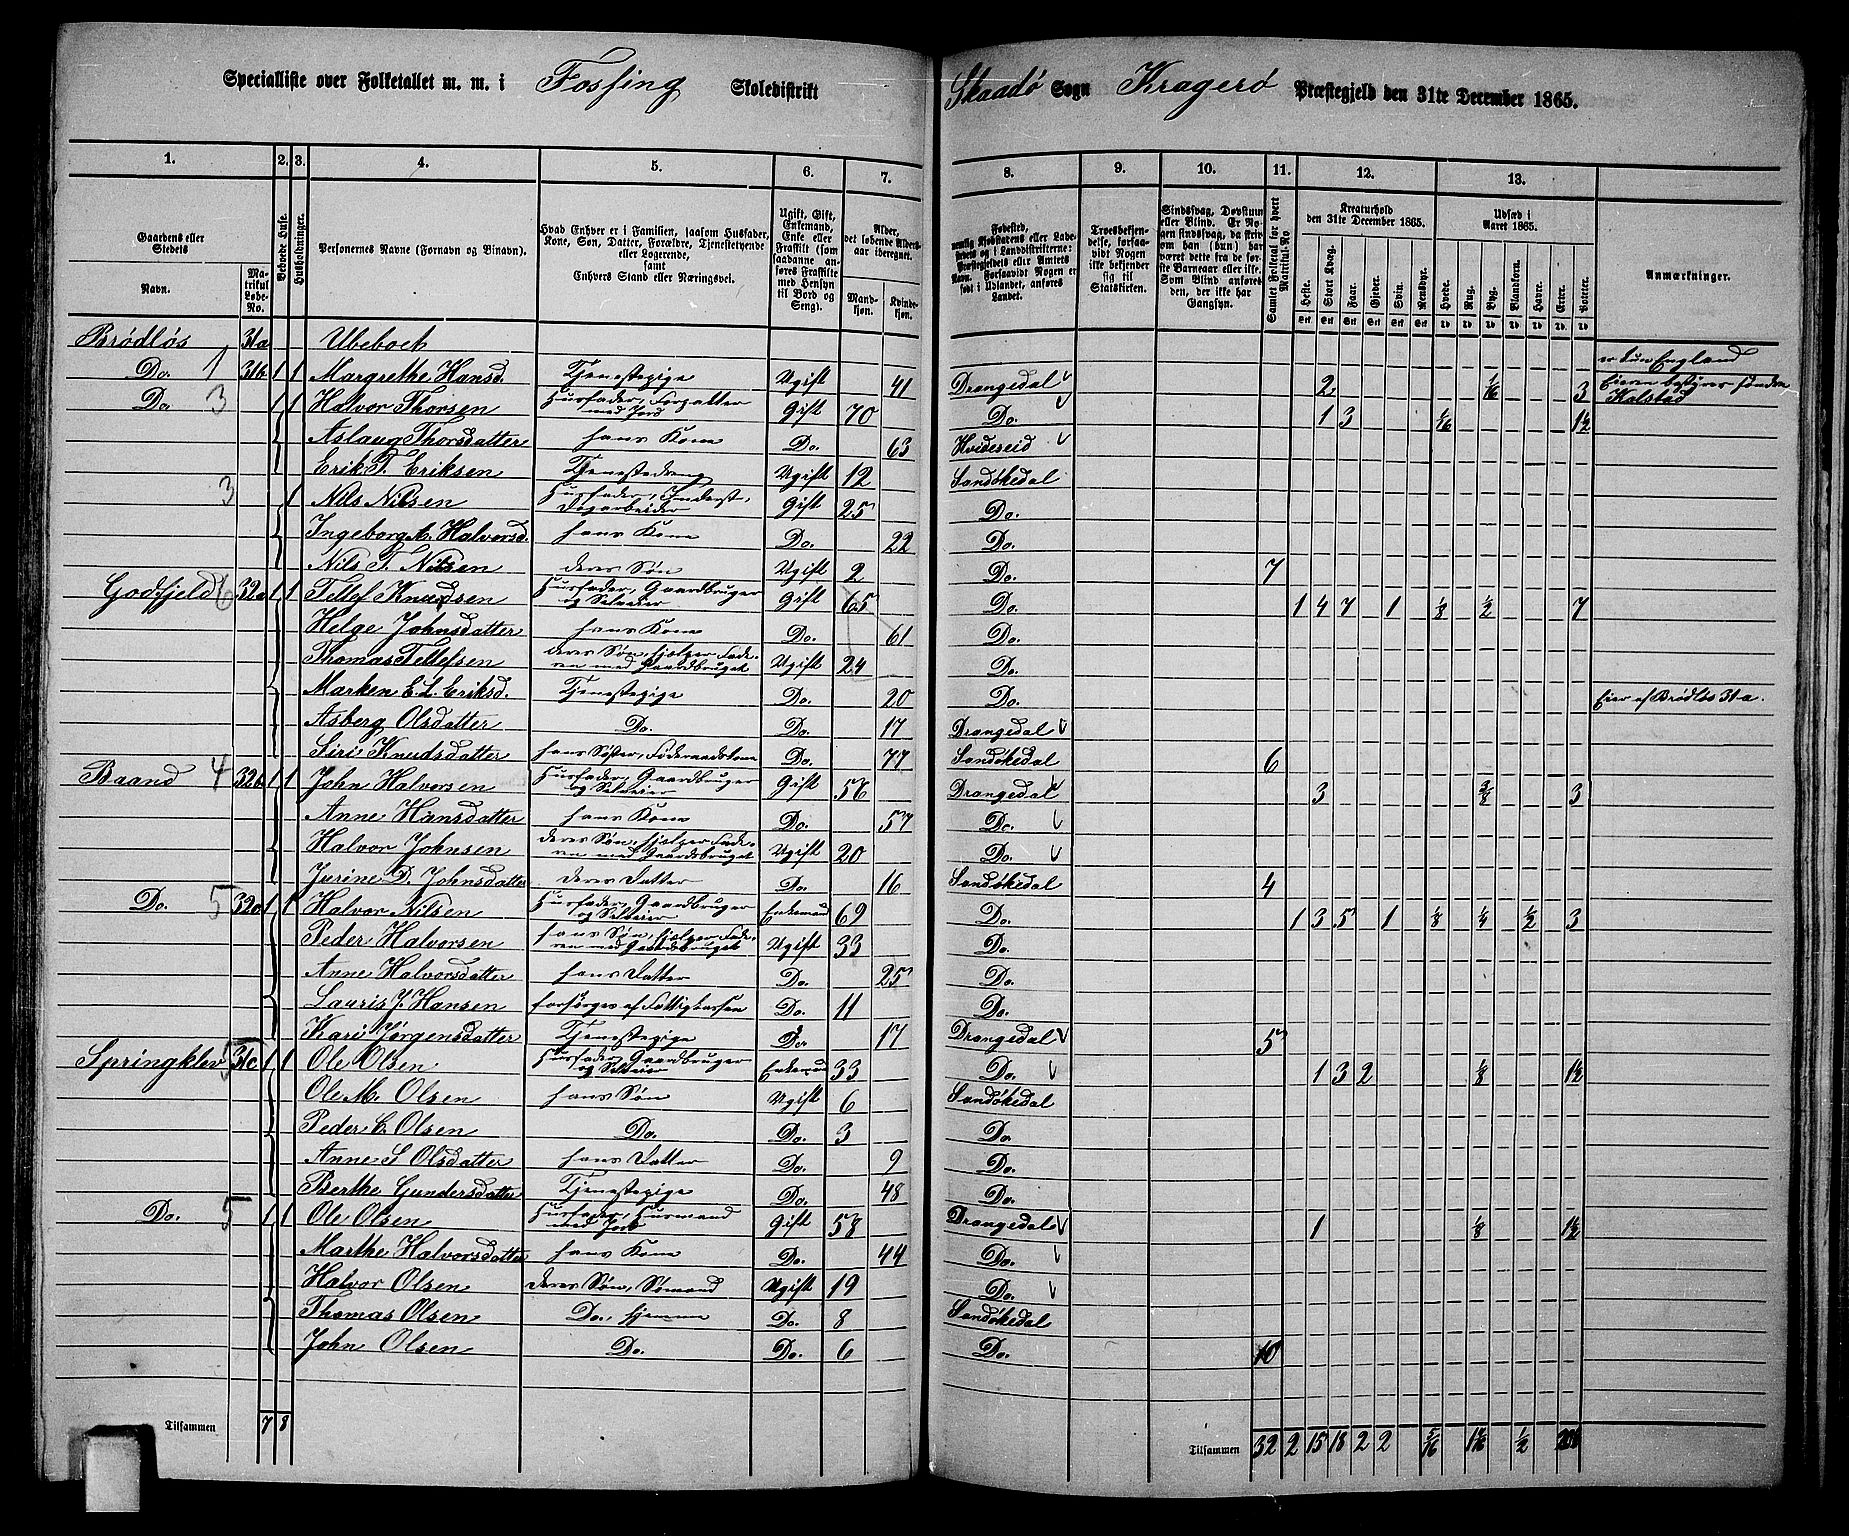 Specialliste over Folketallet m. m. i Fossing Skoledistrikt Skaadø Sogn Kragerø Præstegjeld den 31te December 1865.
1. 2. 3. 4. 5. 6. 7. 8. 9. 10. 11. 12. 13.
Gaardens eller Stedets Navn. Matrikul Løbe-No.
Beboede Huse.
Husholdninger.
Personernes Navne (Fornavn og Binavn).
Hvad Enhver er i Familien, saasom Husfader, Kone, Søn, Datter, Forældre, Tjenestetyende eller Logerende, samt Enhvers Stand eller Næringsvei.
Ugift, Gift, Enkemand, Enke eller Fraskilt (som saadanne anføres Fraskilte med Hensyn til Bord og Seng).
Alder, det løbende Aldersaar iberegnet. Mandkjøn. Kvindekjøn.
Fødested, nemlig Kjøbstadens eller Ladestedets og i Landdistrikterne: Præstegjeldets eller Amtets Navn. Forsaavidt Nogen er født i Udlandet, anføres Landet.
Troesbekjendelse, forsaavidt Nogen ikke bekjender sig til Statskirken.
Sindssvag, Døvstum eller Blind. Er Nogen sindssvag, da skrives om han (hun) har været dette fra de første Barneaar eller ikke. Som Blind anføres den, der ikke har Gangsyn.
Samlet Folketal for hvert Matrikul-No
Kreaturhold den 31te December 1865. Heste. Stort Kvæg. Faar. Gjeder. Svin. Rensdyr.
Udsæd i Aaret 1865. Hvede. Rug. Byg. Blandkorn. Havre. Erter. Poteter.
Anmærkninger.
Brødløs 31a Ubeboet
Do. 1 31b 1 1 Margrethe Hansd. Tjenestepige Ugift 41 Drangedal 2 1/16 3 Eieren bestyrer Gaarden Kalstad
Do 3 1 1 Halvor Thorsen Husfader, Forpagter med Jord Gift 70 Do. 1 3 1/16 1½
Aslaug Thorsdatter hans Kone Do. 63 Hvideseid
Erik T. Eriksen Tjenestedreng Ugift 12 Sandøkedal
3 1 Nils Nilsen Husfader, Inderst, Dagarbeider Gift 25 Do.
Ingeborg A. Halvorsd. hans Kone Do. 22 Do.
Nils T. Nilsen deres Søn Ugift 2 Do. 7
Godfjeld 6 32a 1 1 Tellef Knudsen Husfader, Gaardbruger og Selveier Gift 65 Do. 1 4 7 1 1/8 1/2 7
Helge Johnsdatter hans Kone Do. 61 Do.
Thomas Tellefsen deres Søn, hjelper Faderen med Gaardbruget Ugift 24 Do.
Marken E. L. Eriksd. Tjenestepige Do. 20 Do. Eier af Brødløs 31a.
Asberg Olsdatter Do. Do. 17 Drangedal
Siri Knudsdatter hans Søster, Føderaadskone Do. 77 Sandøkedal 6
Baand 4 32b 1 1 John Halvorsen Husfader, Gaardbruger og Selveier Gift 56 Drangedal 3 3/8 3
Anne Hansdatter hans Kone Do. 57 Do.
Halvor Johnsen deres Søn, hjelper Faderen med Gaardbruget Ugift 20 Do.
Jurine D. Johnsdatter deres Datter Do. 16 Sandøkedal 4
Do. 5 32c 1 1 Halvor Nilsen Husfader, Gaardbruger og Selveier Enkemand 69 Do. 1 3 5 1 1/8 1/4 1/2 3
Peder Halvorsen hans Søn, hjelper Faderen med Gaardsbruget Ugift 33 Do.
Anne Halvorsdatter hans Datter Do. 25 Do.
Lauris J. Hansen forsørges af Fattigkassen Do. 11 Do.
Kari Jørgensdatter Tjenestepige Do. 17 Drangedal 5
Springklev 5 31c 1 1 Ole Olsen Husfader, Gaardbruger og Selveier Enkemand 33 Do. 1 3 2 1/8 1½
Ole M. Olsen hans Søn Ugift 6 Sandøkedal
Peder C. Olsen Do. Do. 3 Do.
Anne S. Olsdatter hans Datter Do. 9 Do.
Berthe Gundersdatter Tjenestepige Do. 48 Do.
Do. 5 1 1 Ole Olsen Husfader, Husmand med Jord Gift 58 Drangedal 1 1/8 1½
Marthe Halvorsdatter hans Kone Do. 44 Do.
Halvor Olsen deres Søn, Sømand Ugift 19 Do.
Thomas Olsen Do., hjemme Do. 8 Sandøkedal
John Olsen Do. Do. 6 Do. 10
Tilsammen 7 8 Tilsammen 32 2 15 18 2 2 5/16 1/2